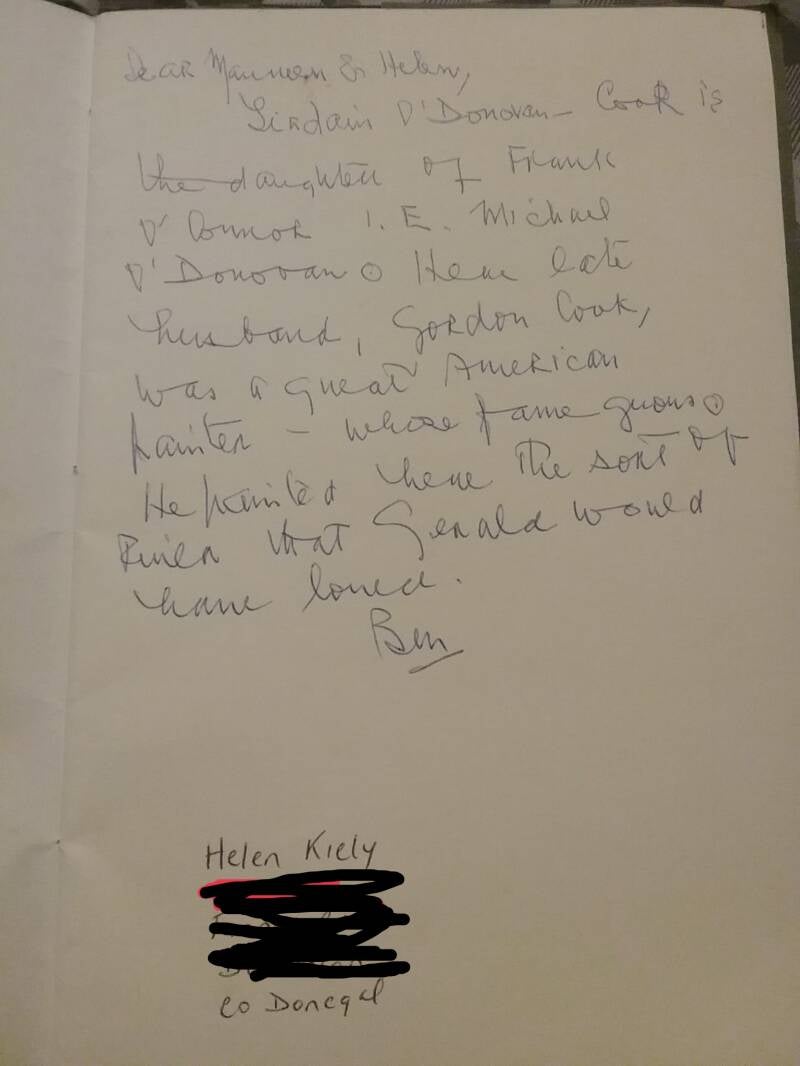 Dear Maureen & Helen,
Liadain O'Donovan - Cook is
the daughter of Frank
O'Connor I.E. Michael
O'Donovan. Her late
husband, Gordon Cook,
was a great American
painter - whose fame grows.
He painted here the sort of
River that Gerald would
have loved.
Ben
Helen Kiely
Co Donegal